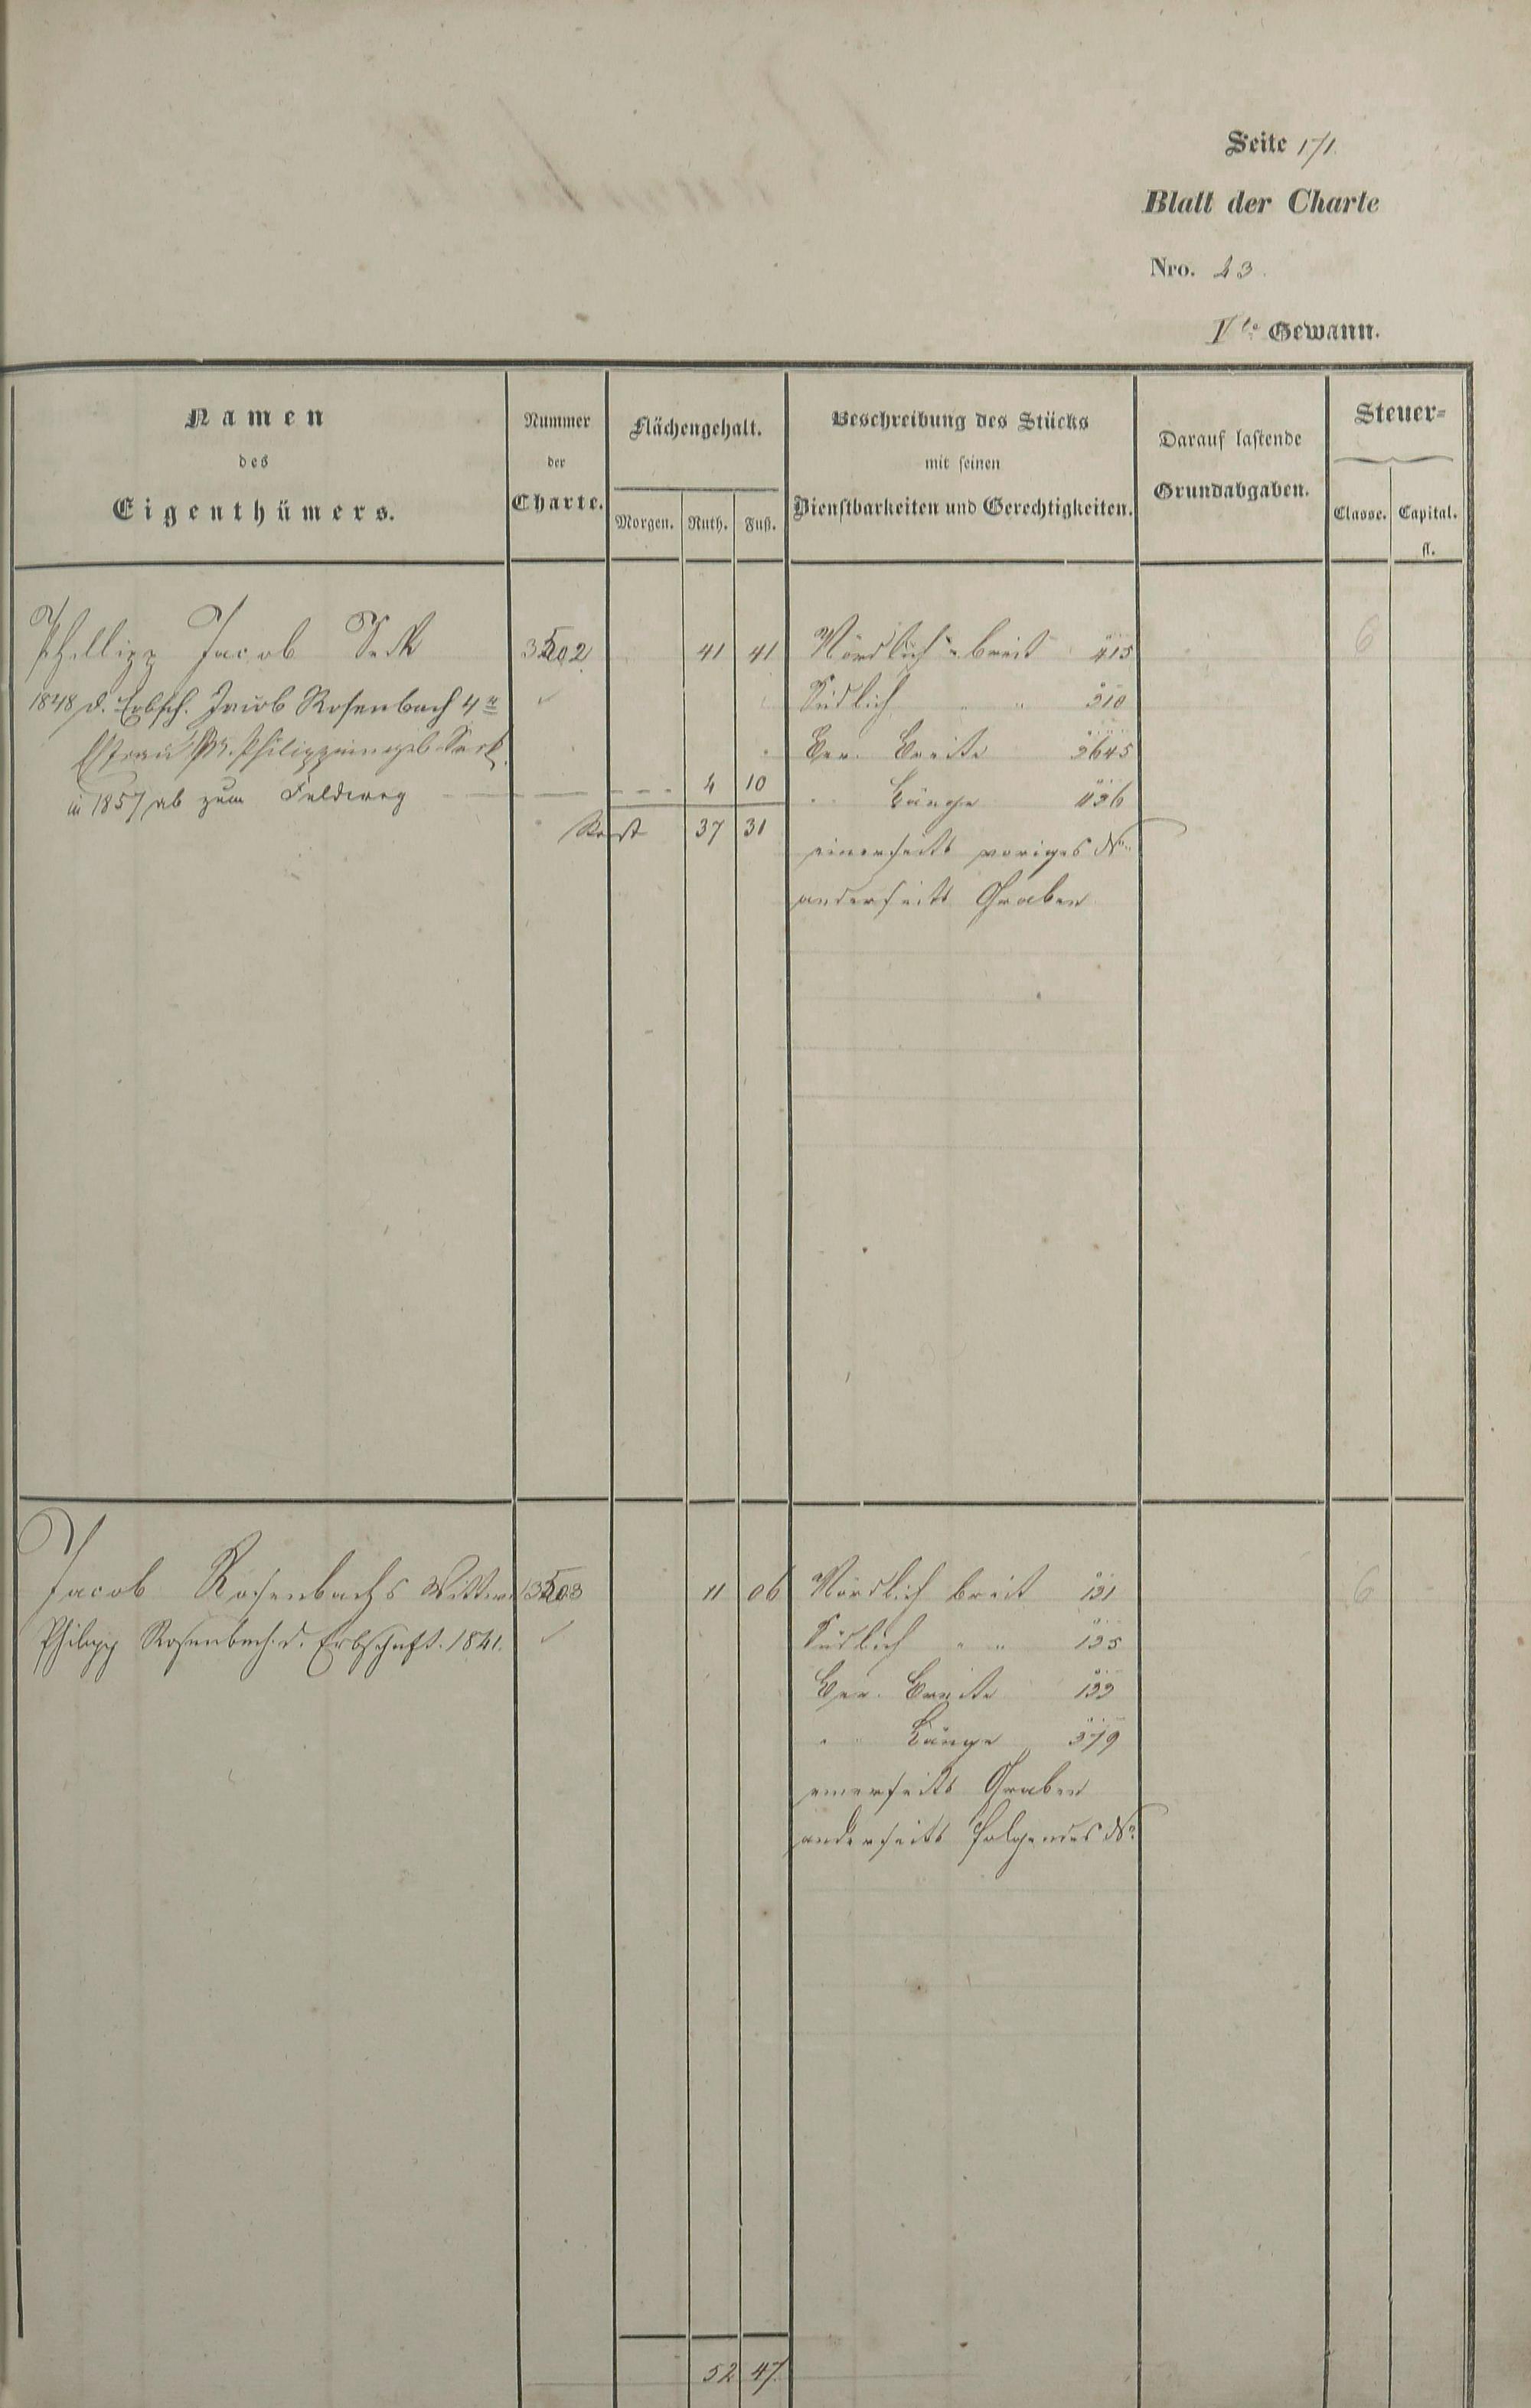 Seite 171
Blatt der Charte
Nro. 23.
Gewann.
Namen
des
Eigenthümers.
Nummer
der
Charte.
Flächengehalt.
Morgen. Ruth. Fuß.
Beschreibung des Stücks
mit seinen
Dienstbarkeiten und Gerechtigkeiten.
Darauf lastende
Grundabgaben.
Steuer-
Classe. Capital.
fl.
Philipp Jacob Seck 3502 41 41 Nördlich breit 415 6
1848 d. Erbsch. Jacob Rosenbach 4r Südlich " " 310
Ehefrau Philippine geb. Seck. Ber. Breite 3645
in 1857 ab zum Feldweg 4 10 " Länge 1136
Rest 37 31
einerseits voriges No
anderseits Graben
Jacob Rosenbachs Wittwe 3503 11 06 Nördlich breit 131 6
Philipp Rosenbach d. Erbschaft. 1841. Südlich " " 135
Ber. Breite 133
" Länge 379
einerseits Graben
anderseits folgendes No
52 47